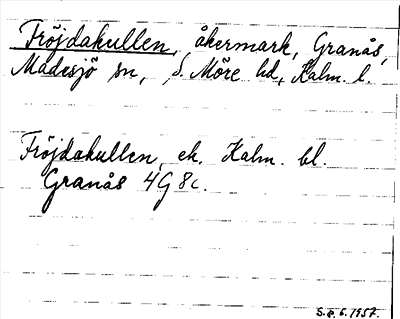 Fröjdakullen, åkermark, Granås,
Madesjö sn, S. Möre hd, Kalm. l.
Fröjdakullen, ek. Kalm. bl.
Granås 4G 8c.
S.P. 6. 1957.